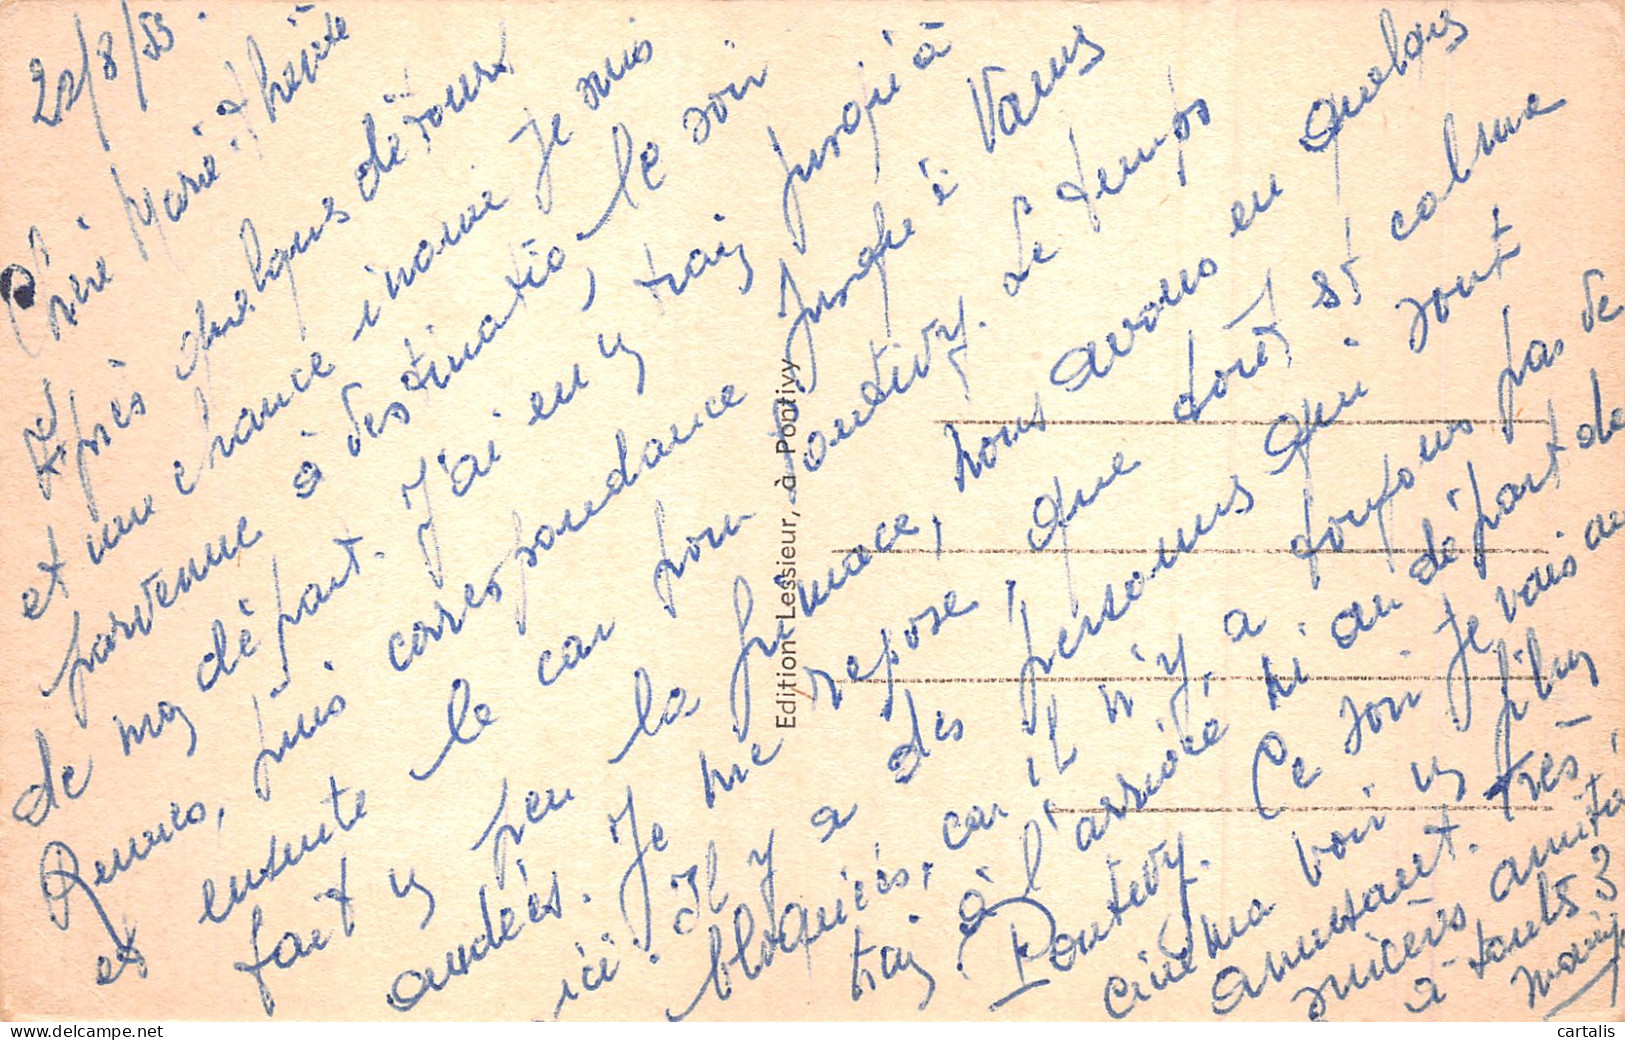 22/8/53.
Chère Marie-thérèse
Après quelques détours
et une chance inouïe je suis
parvenue à destinatio, le soir
de mon départ. J'ai eu un train jusqu'à
Rennes, puis correspondance jusqu'à Vannes
et ensuite le car pour Pontivy. Le temps
fait un peu la grimace, nous avons eu quelques
ondées. Je me repose, que tout est calme
ici. Il y a des personnes qui sont
bloquées, car il n'y a toujours pas de
train à l'arrivée ni au départ de
Pontivy. Ce soir je vais au
cinéma voir un film
amusant. très
sincères amitiés
à toutes 3
Edition Lessieur, à Pontivy
cartalis